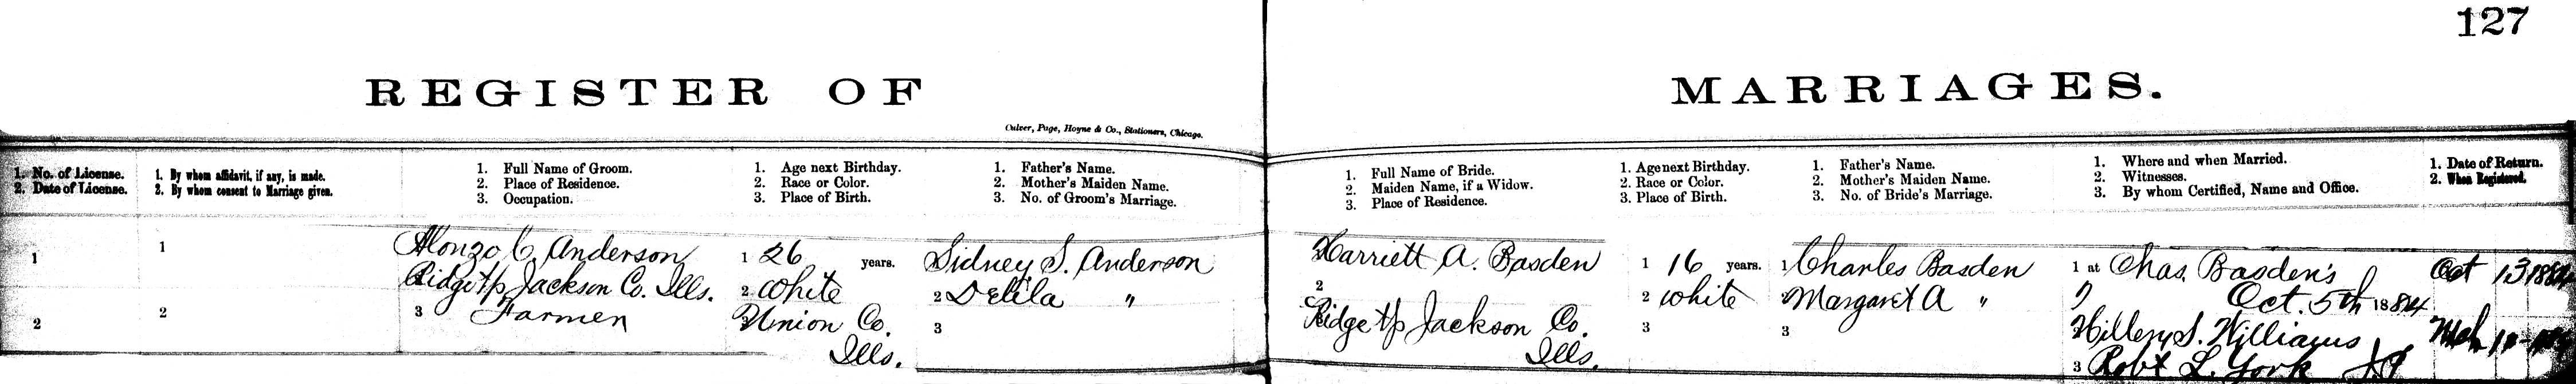 127
REGISTER OF MARRIAGES.
Culver, Page, Hoyne & Co., Stationers, Chicago.
1. No. of License.
2. Date of License.
1. By whom affidavit, if any, is made.
2. By whom consent to Marriage given.
1. Full Name of Groom.
2. Place of Residence.
3. Occupation.
1. Age next Birthday.
2. Race or Color.
3. Place of Birth.
1. Father's Name.
2. Mother's Maiden Name.
3. No. of Groom's Marriage.
1. Full Name of Bride.
2. Maiden Name, if a Widow.
3. Place of Residence.
1. Age next Birthday.
2. Race or Color.
3. Place of Birth.
1. Father's Name.
2. Mother's Maiden Name.
3. No. of Bride's Marriage.
1. Where and when Married.
2. Witnesses.
3. By whom Certified, Name and Office.
1. Date of Return.
2. When Registered.
1
2
1
2
Alonzo C. Anderson
Ridge tp Jackson Co. Ills.
3 Farmer
1 26 years.
2 White
3 Union Co.
Ills.
Sidney S. Anderson
2 Delila "
3
Harriett A. Basden
2
Ridge tp Jackson Co.
Ills.
1 16 years.
2 White
3
1 Charles Basden
2 Margaret A "
3
1 at Chas. Basden's
Oct. 5th 1884
2 Hillery S. Williams
3 Robt L. York J.P.
Oct 13 1884
Mch